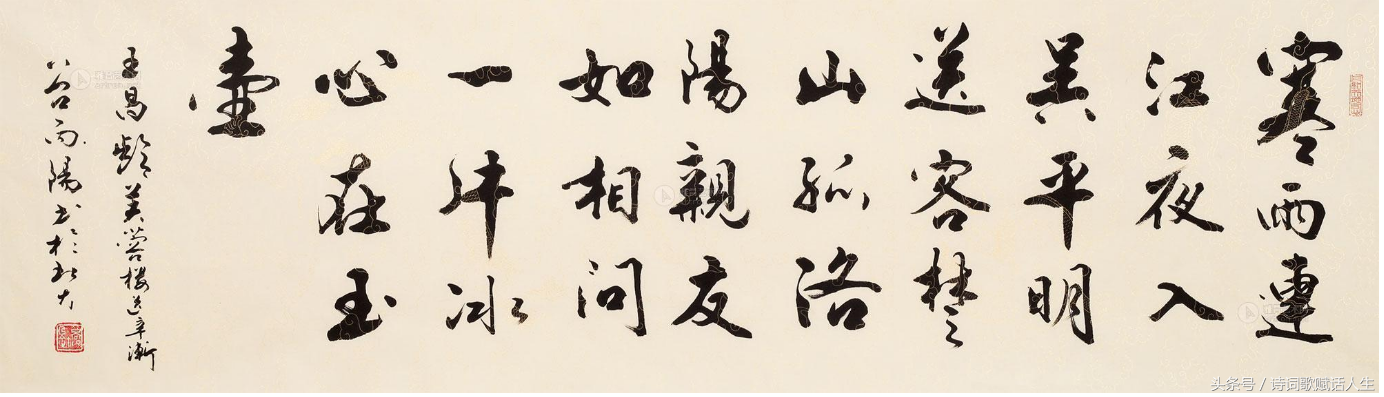 寒雨連
江夜入
吴平明
送客楚
山孤洛
陽親友
如相問
一片冰
心在玉
壺
王昌齡芙蓉楼送辛漸
谷雨陽书於北大
头条号 / 诗词歌赋话人生